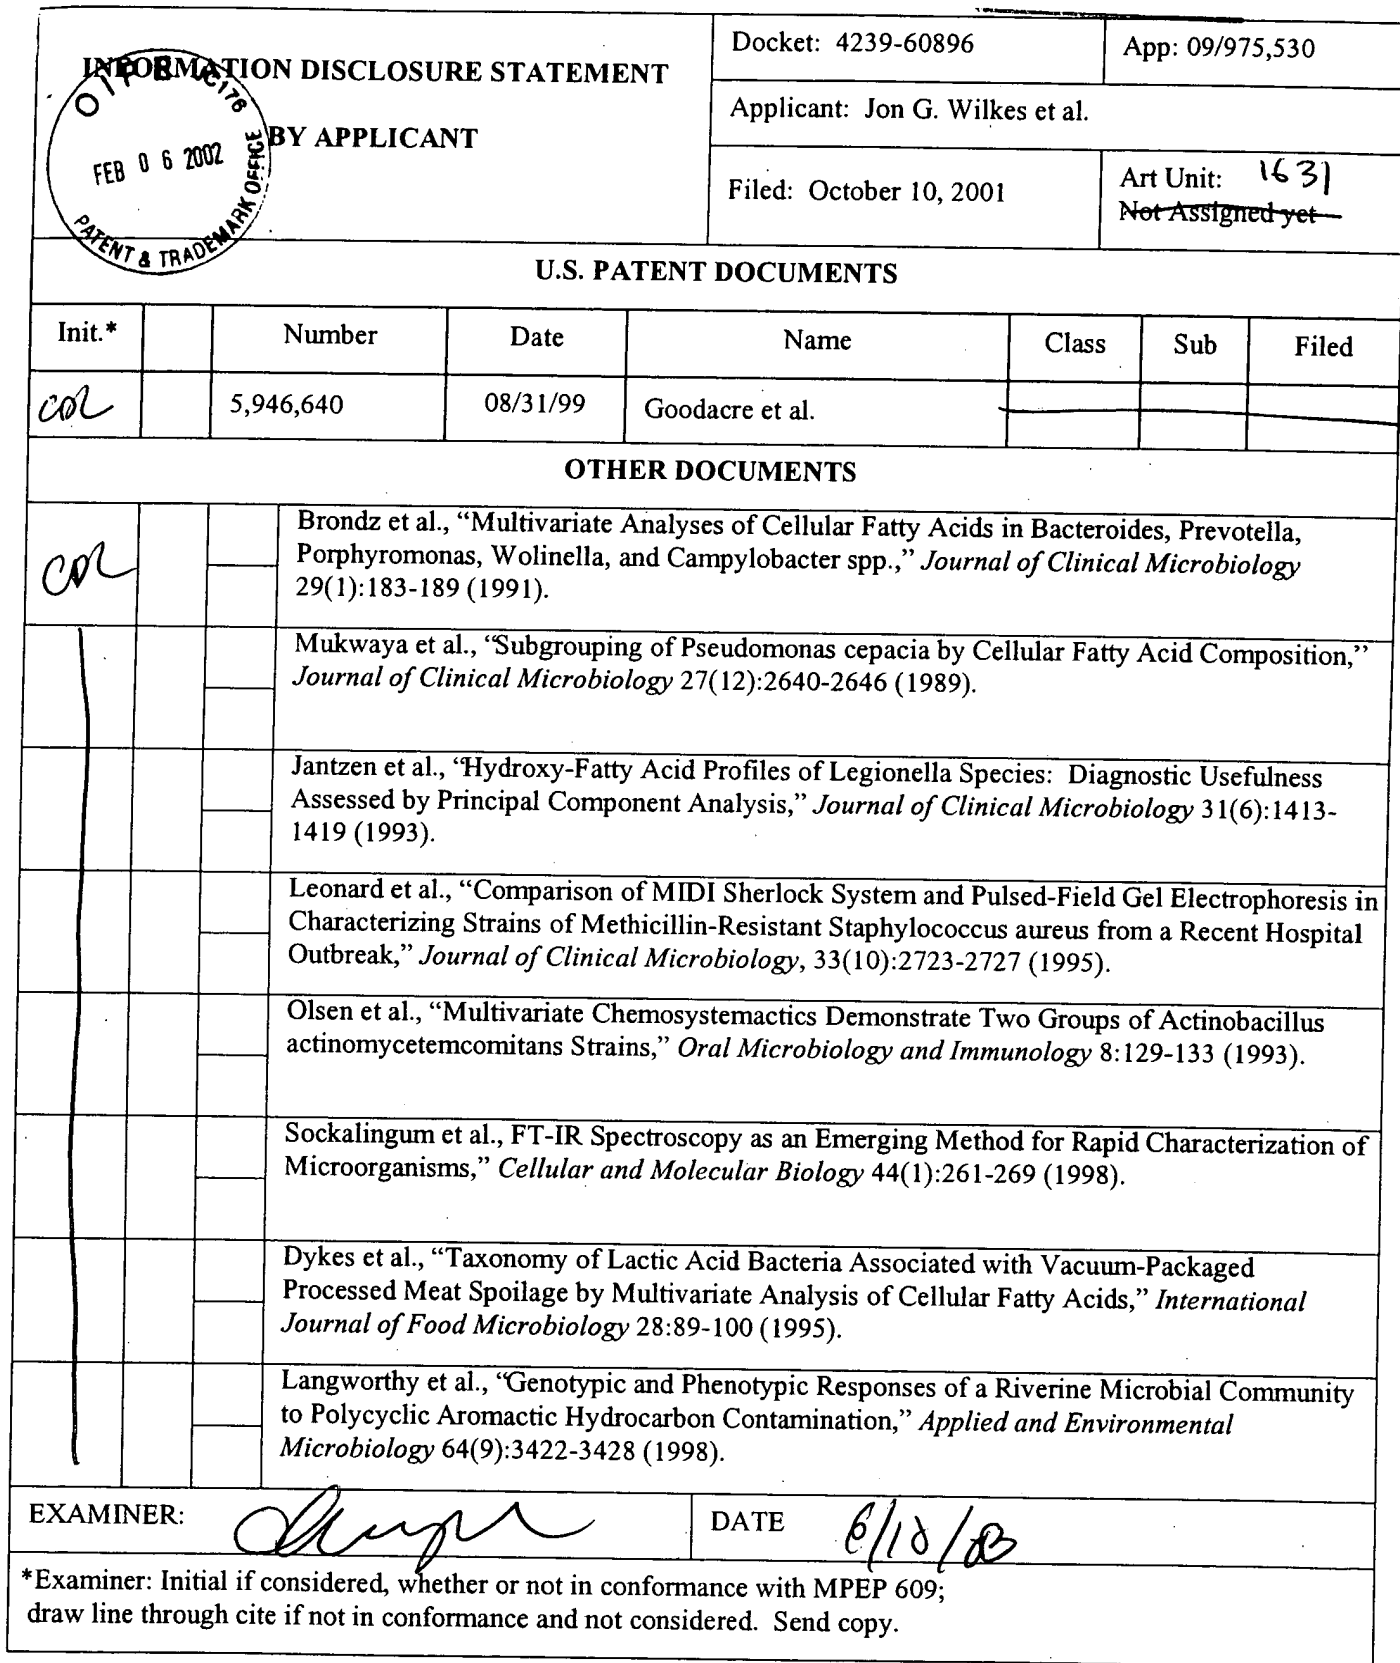 INFORMATION DISCLOSURE STATEMENT
BY APPLICANT
FEB 0 6 2002
PATENT & TRADEMARK OFFICE
Docket: 4239-60896
App: 09/975,530
Applicant: Jon G. Wilkes et al.
Filed: October 10, 2001
Art Unit: 1631
Not Assigned yet
U.S. PATENT DOCUMENTS
Init.* Number Date Name Class Sub Filed
5,946,640 08/31/99 Goodacre et al.
OTHER DOCUMENTS
Brondz et al., “Multivariate Analyses of Cellular Fatty Acids in Bacteroides, Prevotella,
Porphyromonas, Wolinella, and Campylobacter spp.,” Journal of Clinical Microbiology
29(1):183-189 (1991).
Mukwaya et al., “Subgrouping of Pseudomonas cepacia by Cellular Fatty Acid Composition,”
Journal of Clinical Microbiology 27(12):2640-2646 (1989).
Jantzen et al., “Hydroxy-Fatty Acid Profiles of Legionella Species: Diagnostic Usefulness
Assessed by Principal Component Analysis,” Journal of Clinical Microbiology 31(6):1413-
1419 (1993).
Leonard et al., “Comparison of MIDI Sherlock System and Pulsed-Field Gel Electrophoresis in
Characterizing Strains of Methicillin-Resistant Staphylococcus aureus from a Recent Hospital
Outbreak,” Journal of Clinical Microbiology, 33(10):2723-2727 (1995).
Olsen et al., “Multivariate Chemosystemactics Demonstrate Two Groups of Actinobacillus
actinomycetemcomitans Strains,” Oral Microbiology and Immunology 8:129-133 (1993).
Sockalingum et al., FT-IR Spectroscopy as an Emerging Method for Rapid Characterization of
Microorganisms,” Cellular and Molecular Biology 44(1):261-269 (1998).
Dykes et al., “Taxonomy of Lactic Acid Bacteria Associated with Vacuum-Packaged
Processed Meat Spoilage by Multivariate Analysis of Cellular Fatty Acids,” International
Journal of Food Microbiology 28:89-100 (1995).
Langworthy et al., “Genotypic and Phenotypic Responses of a Riverine Microbial Community
to Polycyclic Aromactic Hydrocarbon Contamination,” Applied and Environmental
Microbiology 64(9):3422-3428 (1998).
EXAMINER:
DATE
*Examiner: Initial if considered, whether or not in conformance with MPEP 609;
draw line through cite if not in conformance and not considered. Send copy.